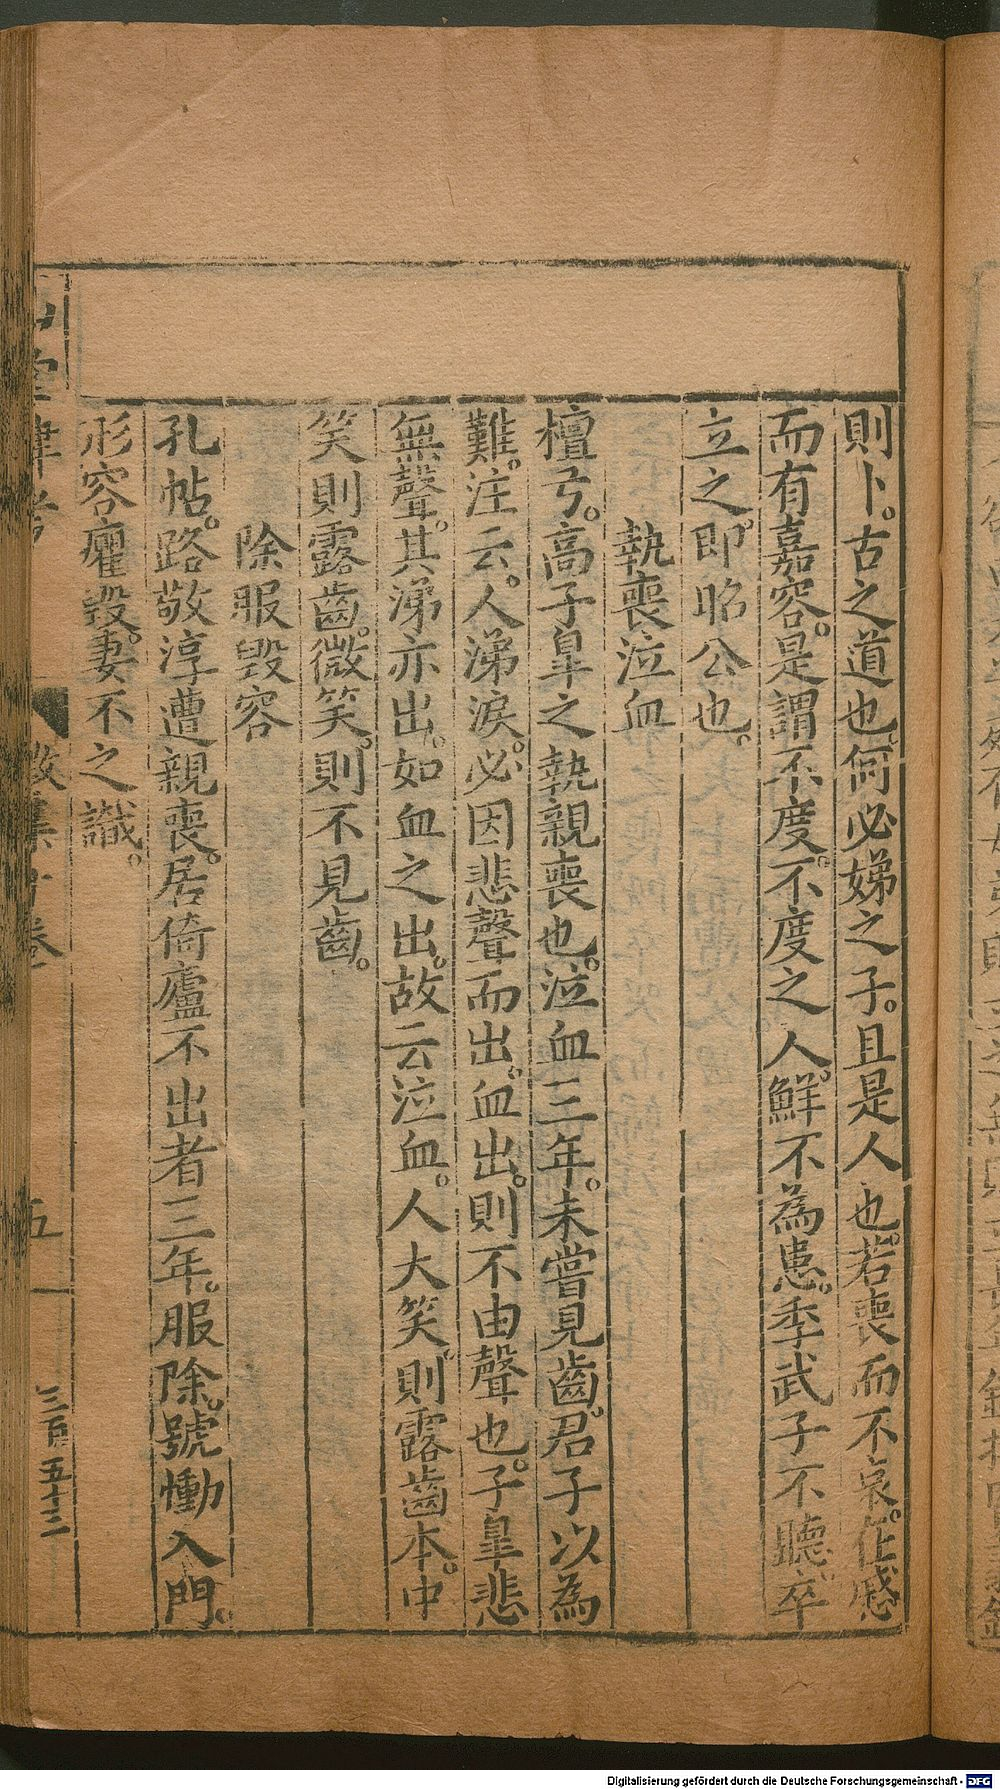 則卜。古之道也。何必娣之子。且是人也。若喪而不哀。在慼
而有嘉容。是謂不度。不度之人。鮮不為患。季武子不聽。卒
立之。即昭公也。
執喪泣血
檀弓。高子皐之執親喪也。泣血三年。未嘗見齒。君子以為
難。注云。人涕淚。必因悲聲而出。血出。則不由聲也。子皐悲
無聲。其涕亦出。如血之出。故云泣血。人大笑。則露齒本。中
笑則露齒。微笑。則不見齒。
除服毀容
孔帖。路敬淳遭親喪。居倚廬不出者三年。服除。號慟入門。
形容癯毀。妻不之識。
山堂肆考
五
三百五十三
Digitalisierung gefördert durch die Deutsche Forschungsgemeinschaft - DFG